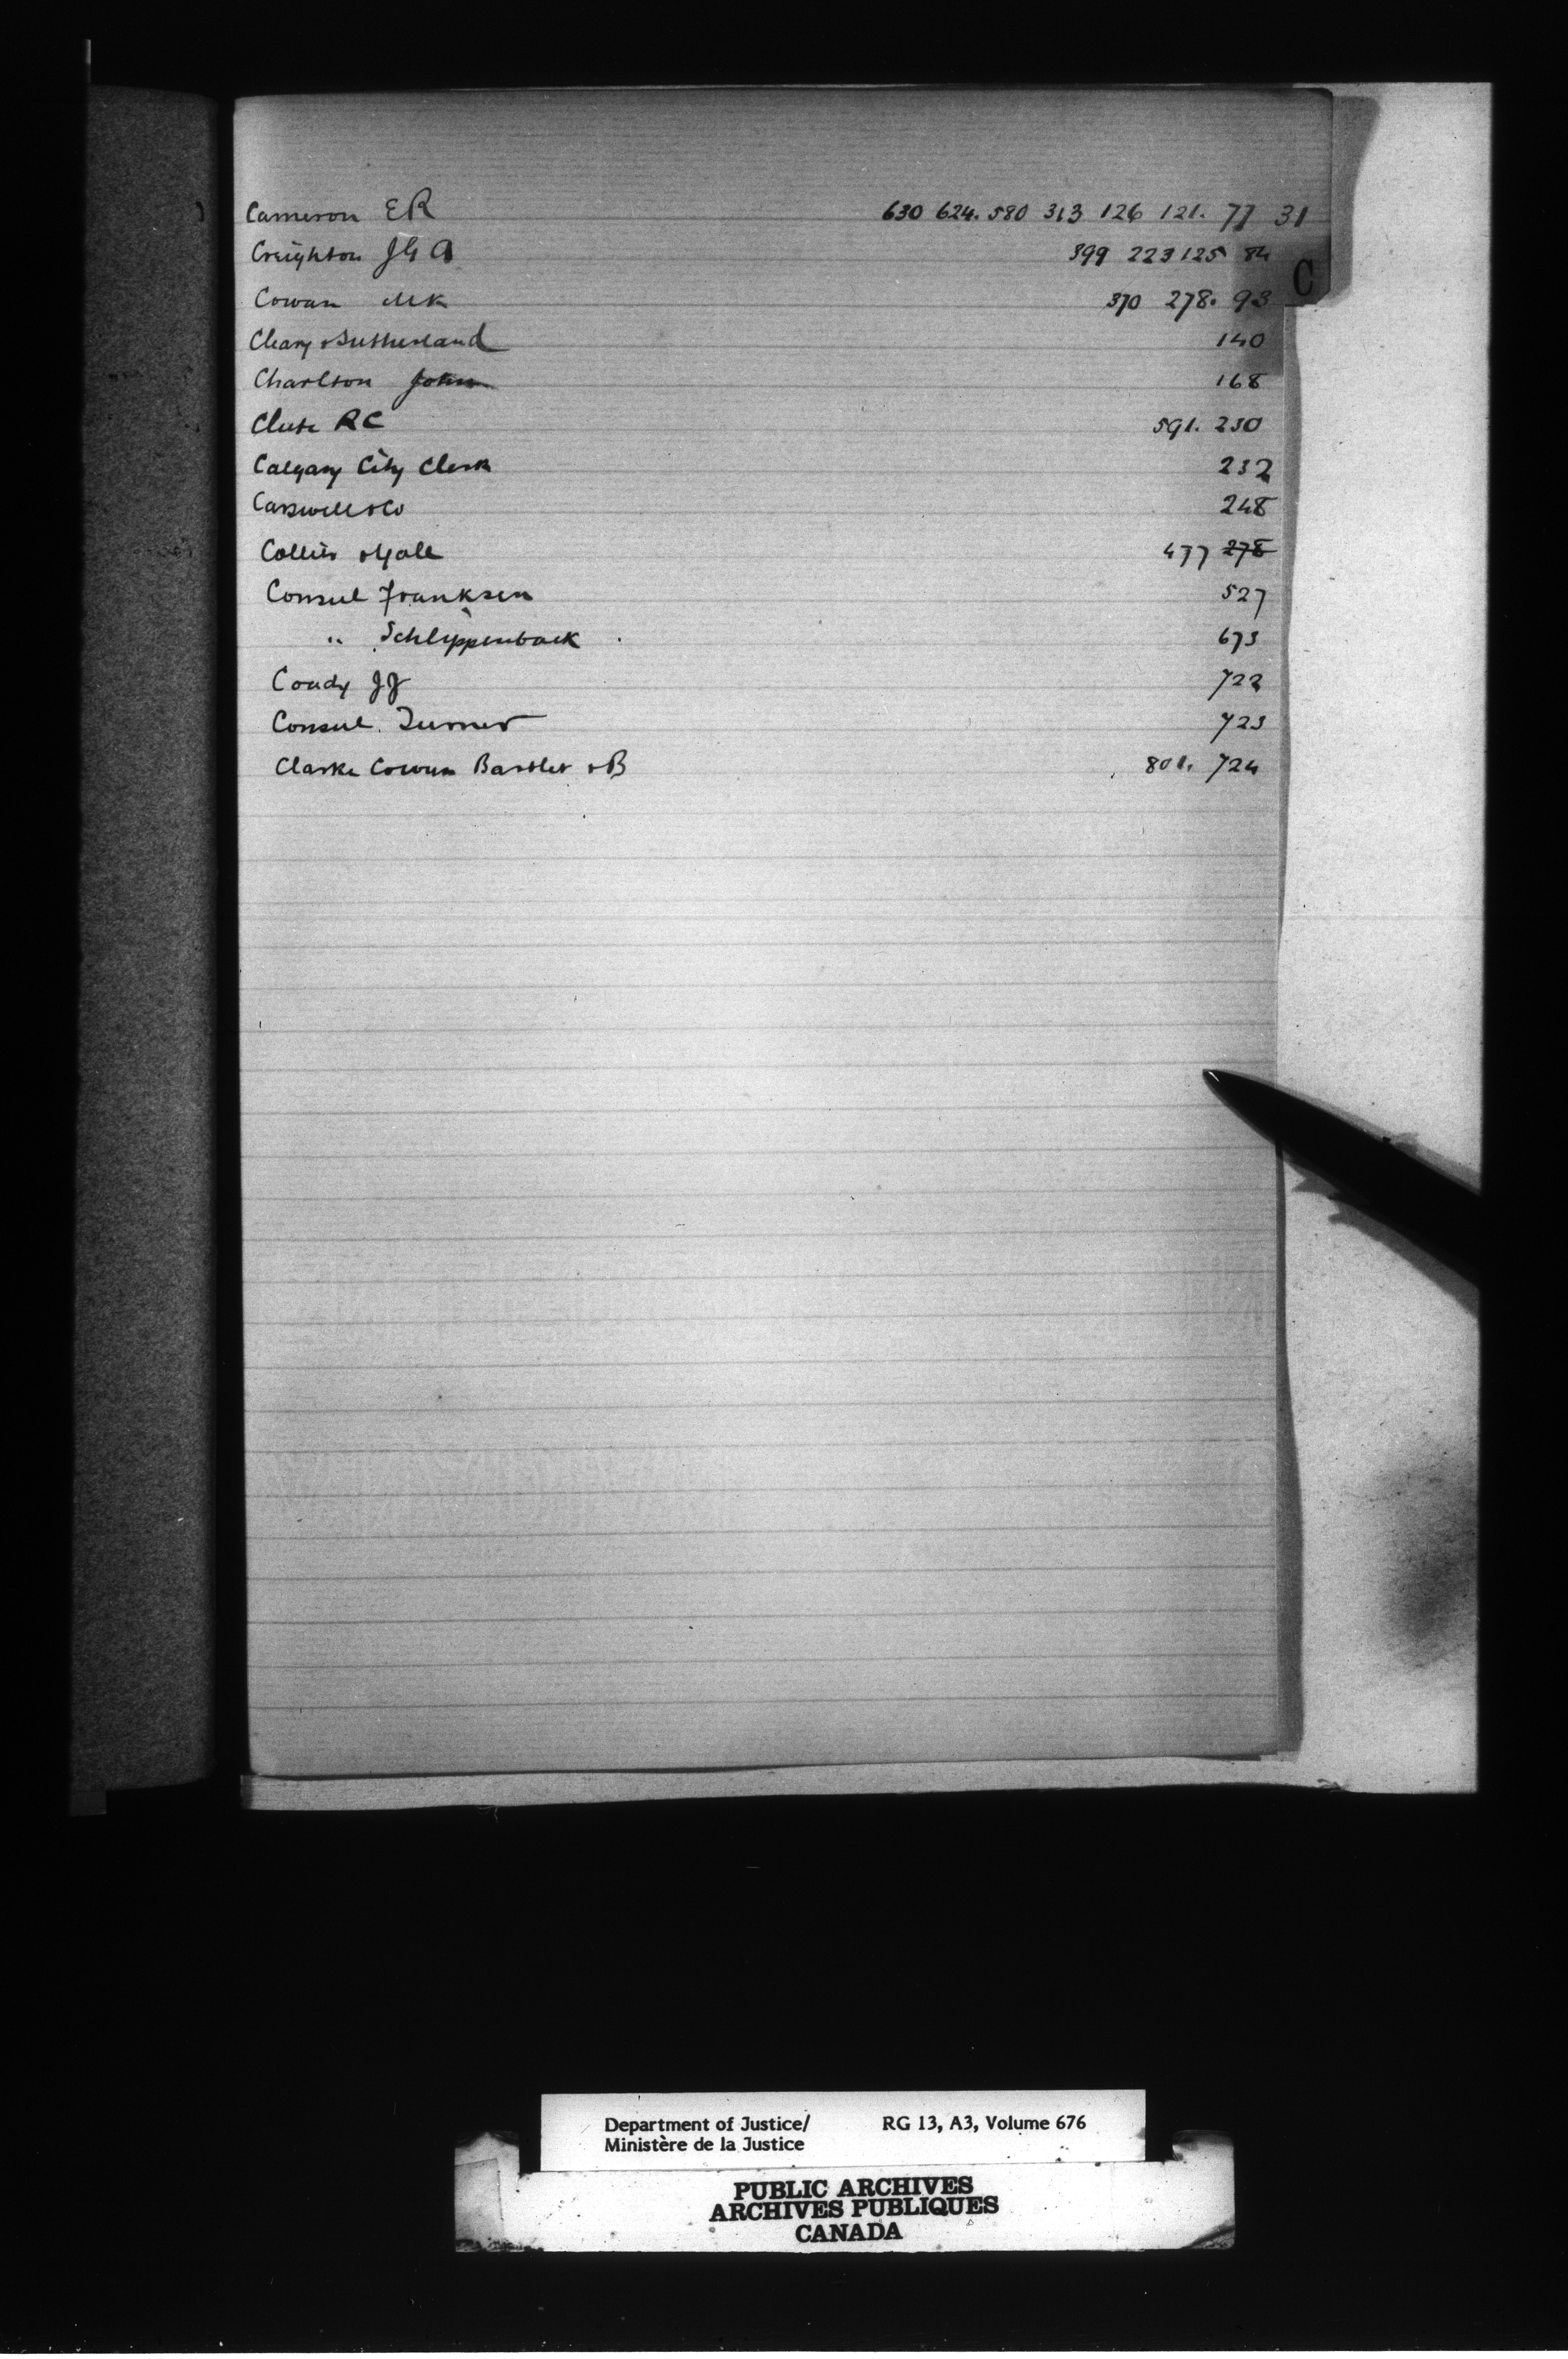 C
Cameron ER 630 624. 580 313 126 121. 77 31
Creighton JGA 399 223 125 84
Cowan MK 370 278. 93
Cleary & Sutherland 140
Charlton John 168
Clute RC 591. 230
Calgary City Clerk 232
Carswell & Co 248
Collier & Yale 477 278
Consul Franksen 527
" Schlippenback 673
Coady JJ 722
Consul. Turner 723
Clarke Cowan Bartlet & B 801. 724
Department of Justice/ RG 13, A3, Volume 676
Ministère de la Justice
PUBLIC ARCHIVES
ARCHIVES PUBLIQUES
CANADA